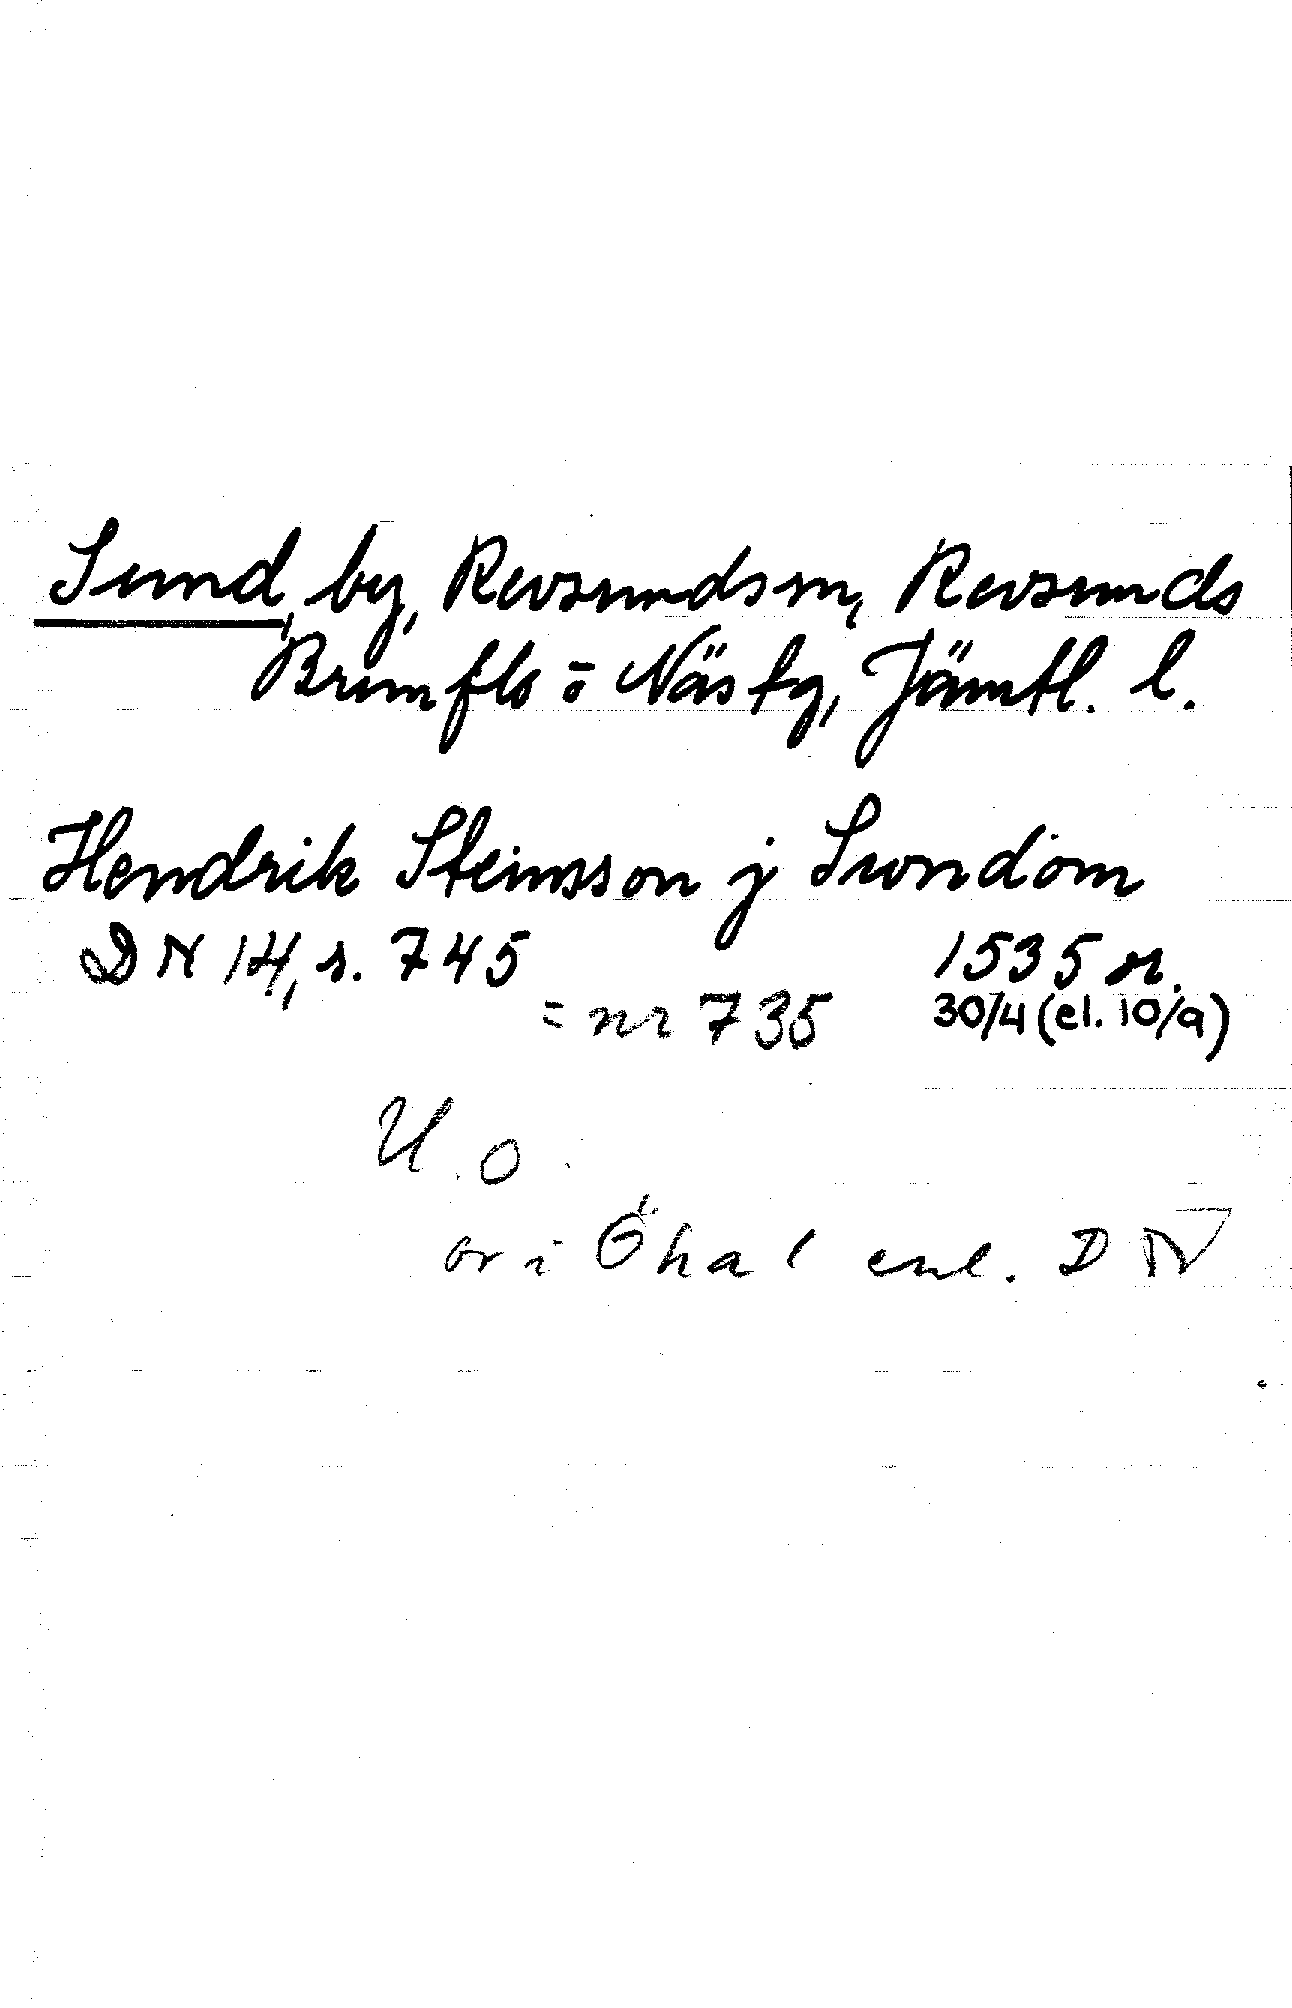 Sund, by, Revsunds sn, Revsunds
Brunflo o Näs tg, Jämtl. l.
Hendrik Steinsson j Swndom
DN 14, s. 745 1535 or.
= nr 735 30/4 (el. 10/9)
U.O.
or i Öhal enl. DN